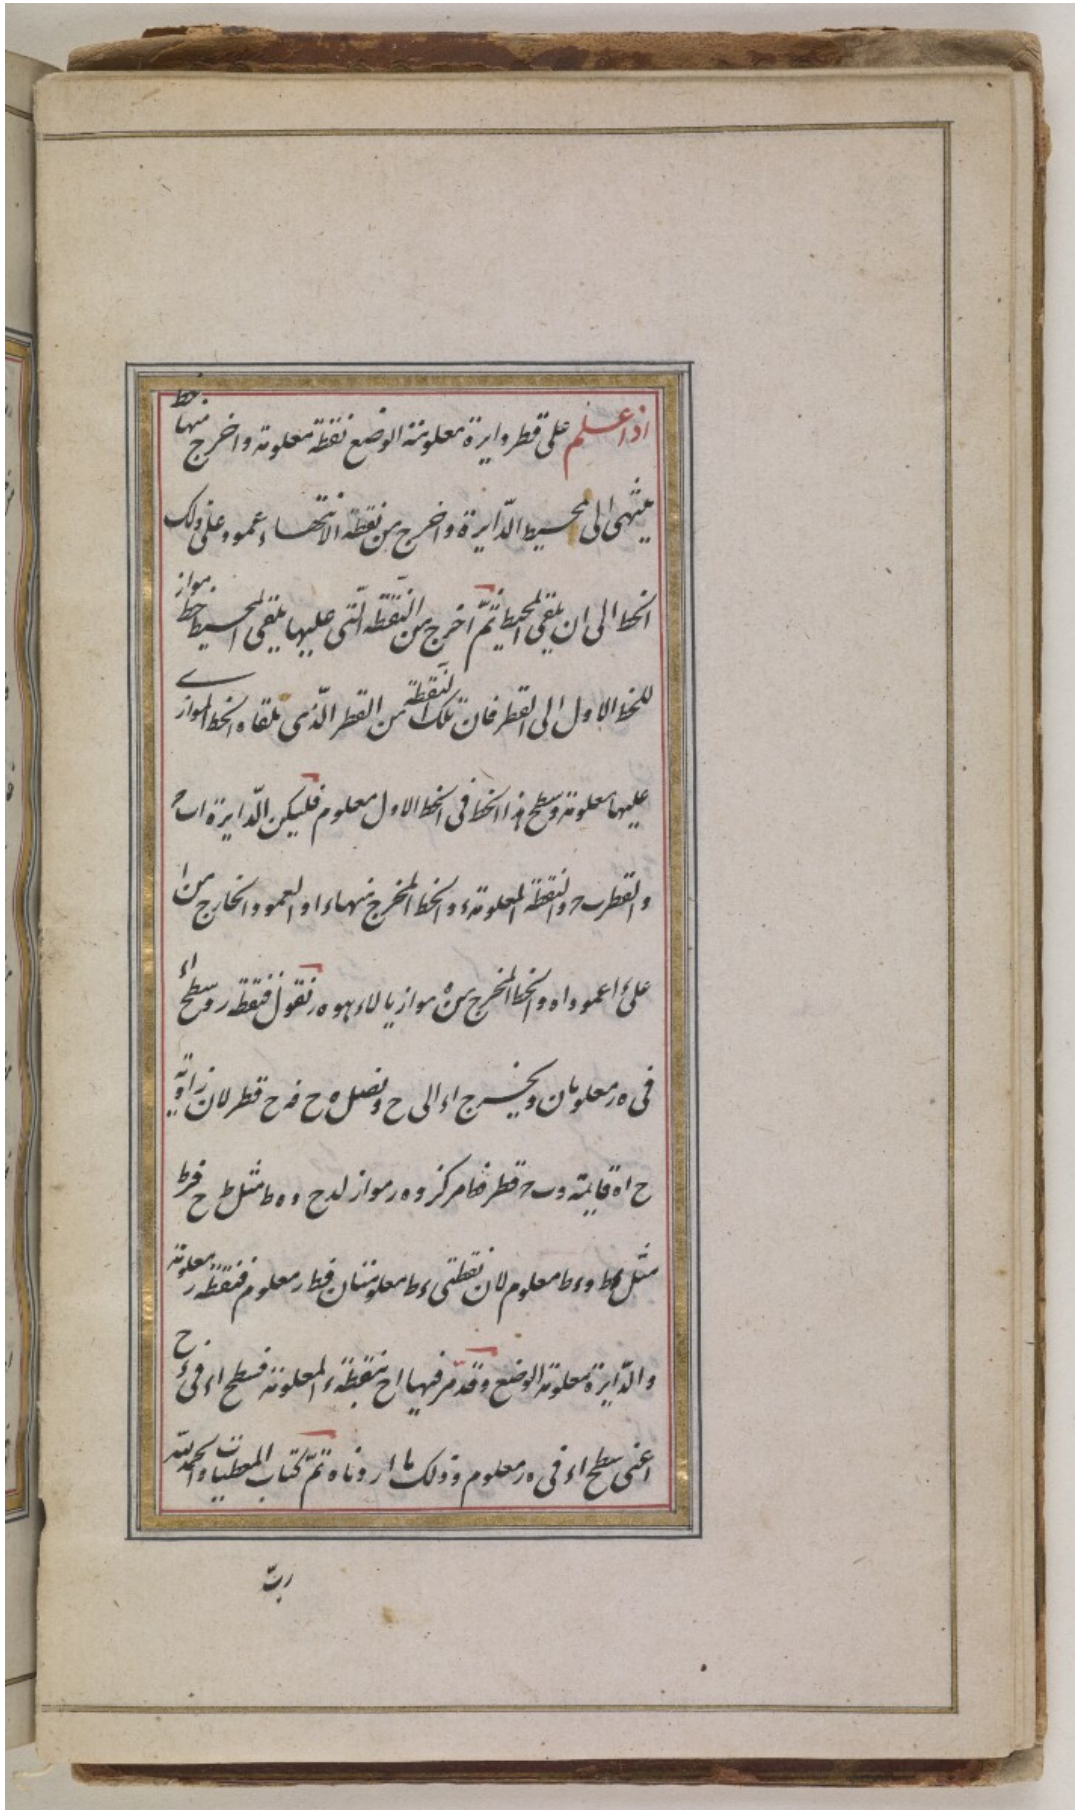 اذا علم على قطر دايرة معلومة الوضع نقطة معلومة واخرج منها خط
ينتهى الى محيط الدّايرة واخرج من نقطة الانتهاء عمود على ذلك
الخط الى ان يلقى المحيط ثمّ اخرج من النّقطة الّتى عليها يلقى المحيط خط مواز
للخط الاول الى القطر فان تلك النقطة من القطر الّذى يلقاه الخط الموازى
عليها معلومة وسطح هذا الخط فى الخط الاول معلوم فليكن الدّايرة ا ب ح
والقطر ب ح والنقطة المعلومة ء والخط المخرج منها ء ا والعمود الخارج من ا
على ء ا عمود ا ه والخط المخرج من ه موازيا لا ء هو ه ر نقول فنقطة ر وسطح ا ء
فى ه ر معلومان ويخرج ا ء الى ح ونصل ه ح فه ح قطر لان زاوية
ح ا ه قايمة و ب ح قطر فط مركز و ه ر مواز لد ح و ه ط مثل ط ح فرط
مثل ء ط و ء ط معلوم لان نقطتى ء ط معلومتان فط ر معلوم فنقطة ر معلومة
والدّايرة معلومة الوضع وقد مر فيها ا ح بنقطة ء المعلومة فسطح ا ء فى ء ح
اعنى سطح ا ء فى ه ر معلوم وذلك ما اردناه تمّ كتاب المعطيات والحمد للّه
ربّ